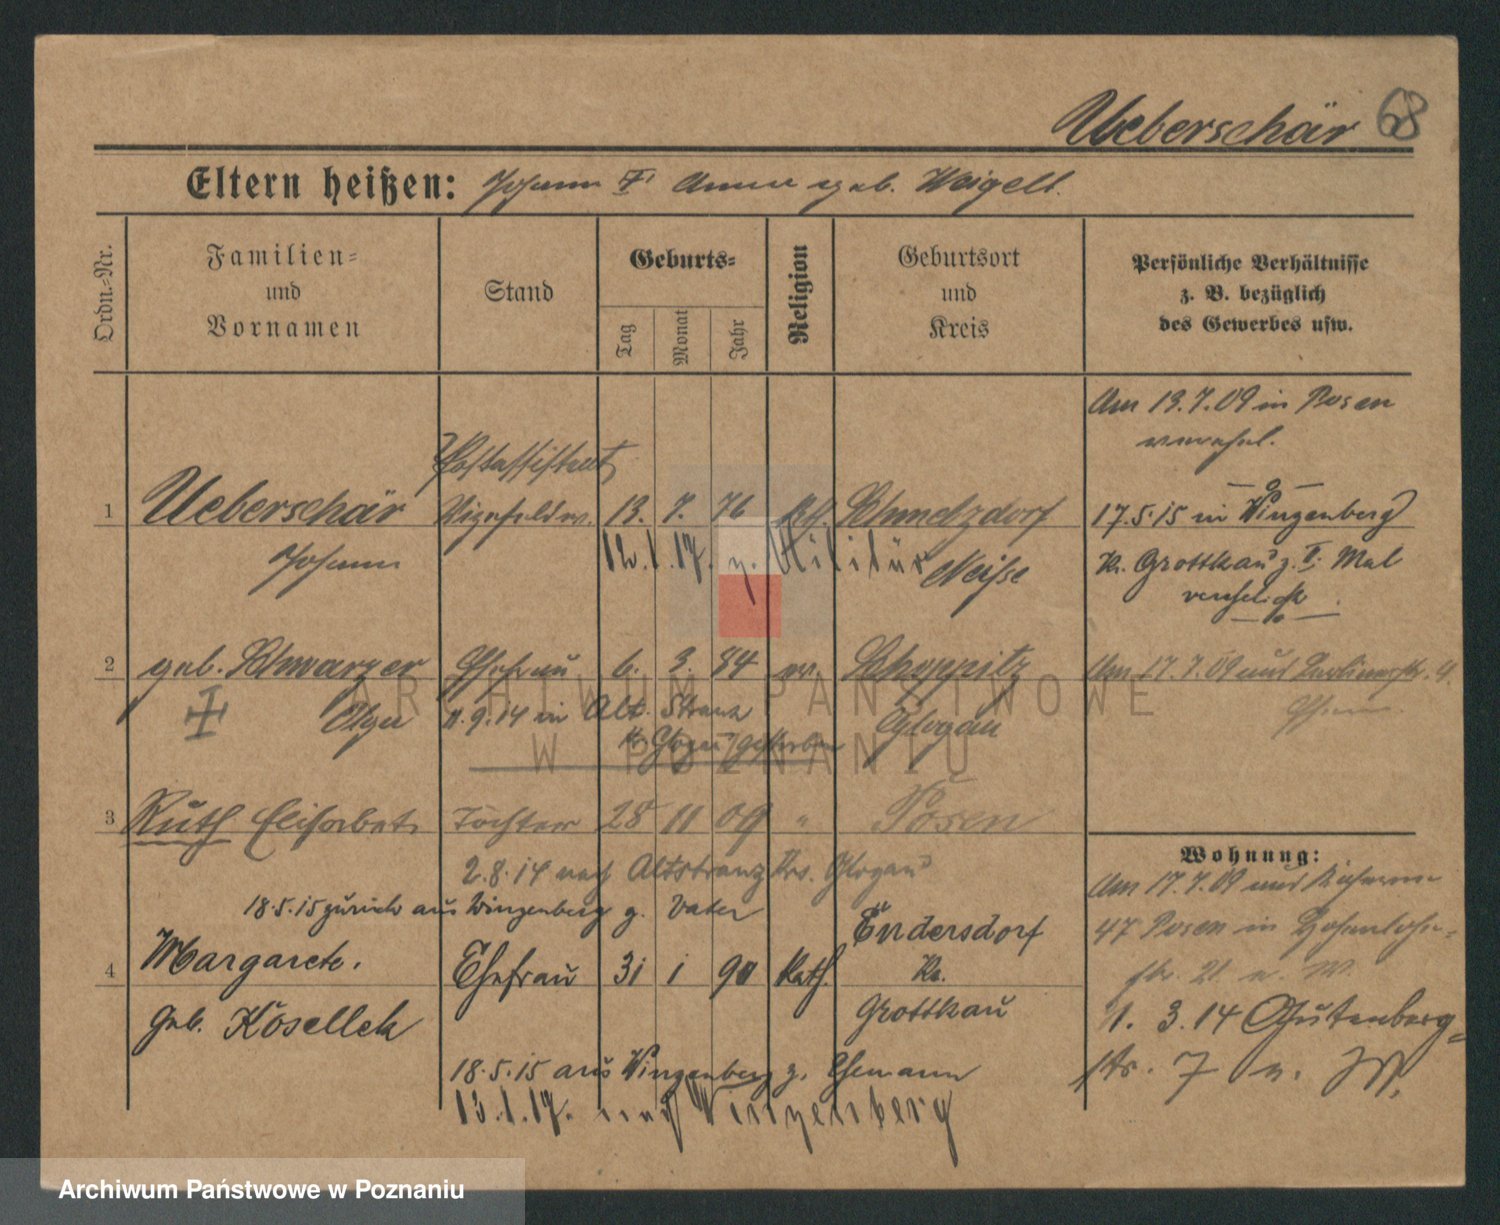 Ueberschär 68
Eltern heißen: Johann † Anna geb. Weigelt.
Ordn.-Nr.
Familien-
und
Vornamen
Stand
Geburts-
Tag
Monat
Jahr
Religion
Geburtsort
und
Kreis
Persönliche Verhältnisse
z. B. bezüglich
des Gewerbes usw.
Am 13.7.09 in Posen
verehel.
Postassistent
1 Ueberschär Vizefeldw. 13. 7. 76 Schmelzdorf
Johann Neisse
12.1.17. z. Militär
17.5.15 in Winzenberg
Kr. Grottkau z. II. Mal
verehelicht.
2 geb. Schwarzer Ehefrau 6. 3. 84 ev. Schoppitz
Olga Glogau
11.9.14 in Alt. Stranz
Kr. Glogau gestorben
Am 17.7.09 aus
3 Ruth Elisabet Tochter 28 11 09 " Posen
2.8.14 nach Altstranz Krs. Glogau
18.5.15 zurück aus Winzenberg z. Vater
4 Margarete. Ehefrau 31 1 90 Kath. Endersdorf
Kr.
Grottkau
geb. Kösellek
18.5.15 aus Winzenberg z. Ehemann
13.1.17. nach Winzenberg
Wohnung:
Am 17.7.09
47 Posen in Hohenlohe-
str. 21 b. W.
1. 3.14 Gutenberg-
str. 7 b.
ARCHIWUM PAŃSTWOWE
W POZNANIU
Archiwum Państwowe w Poznaniu